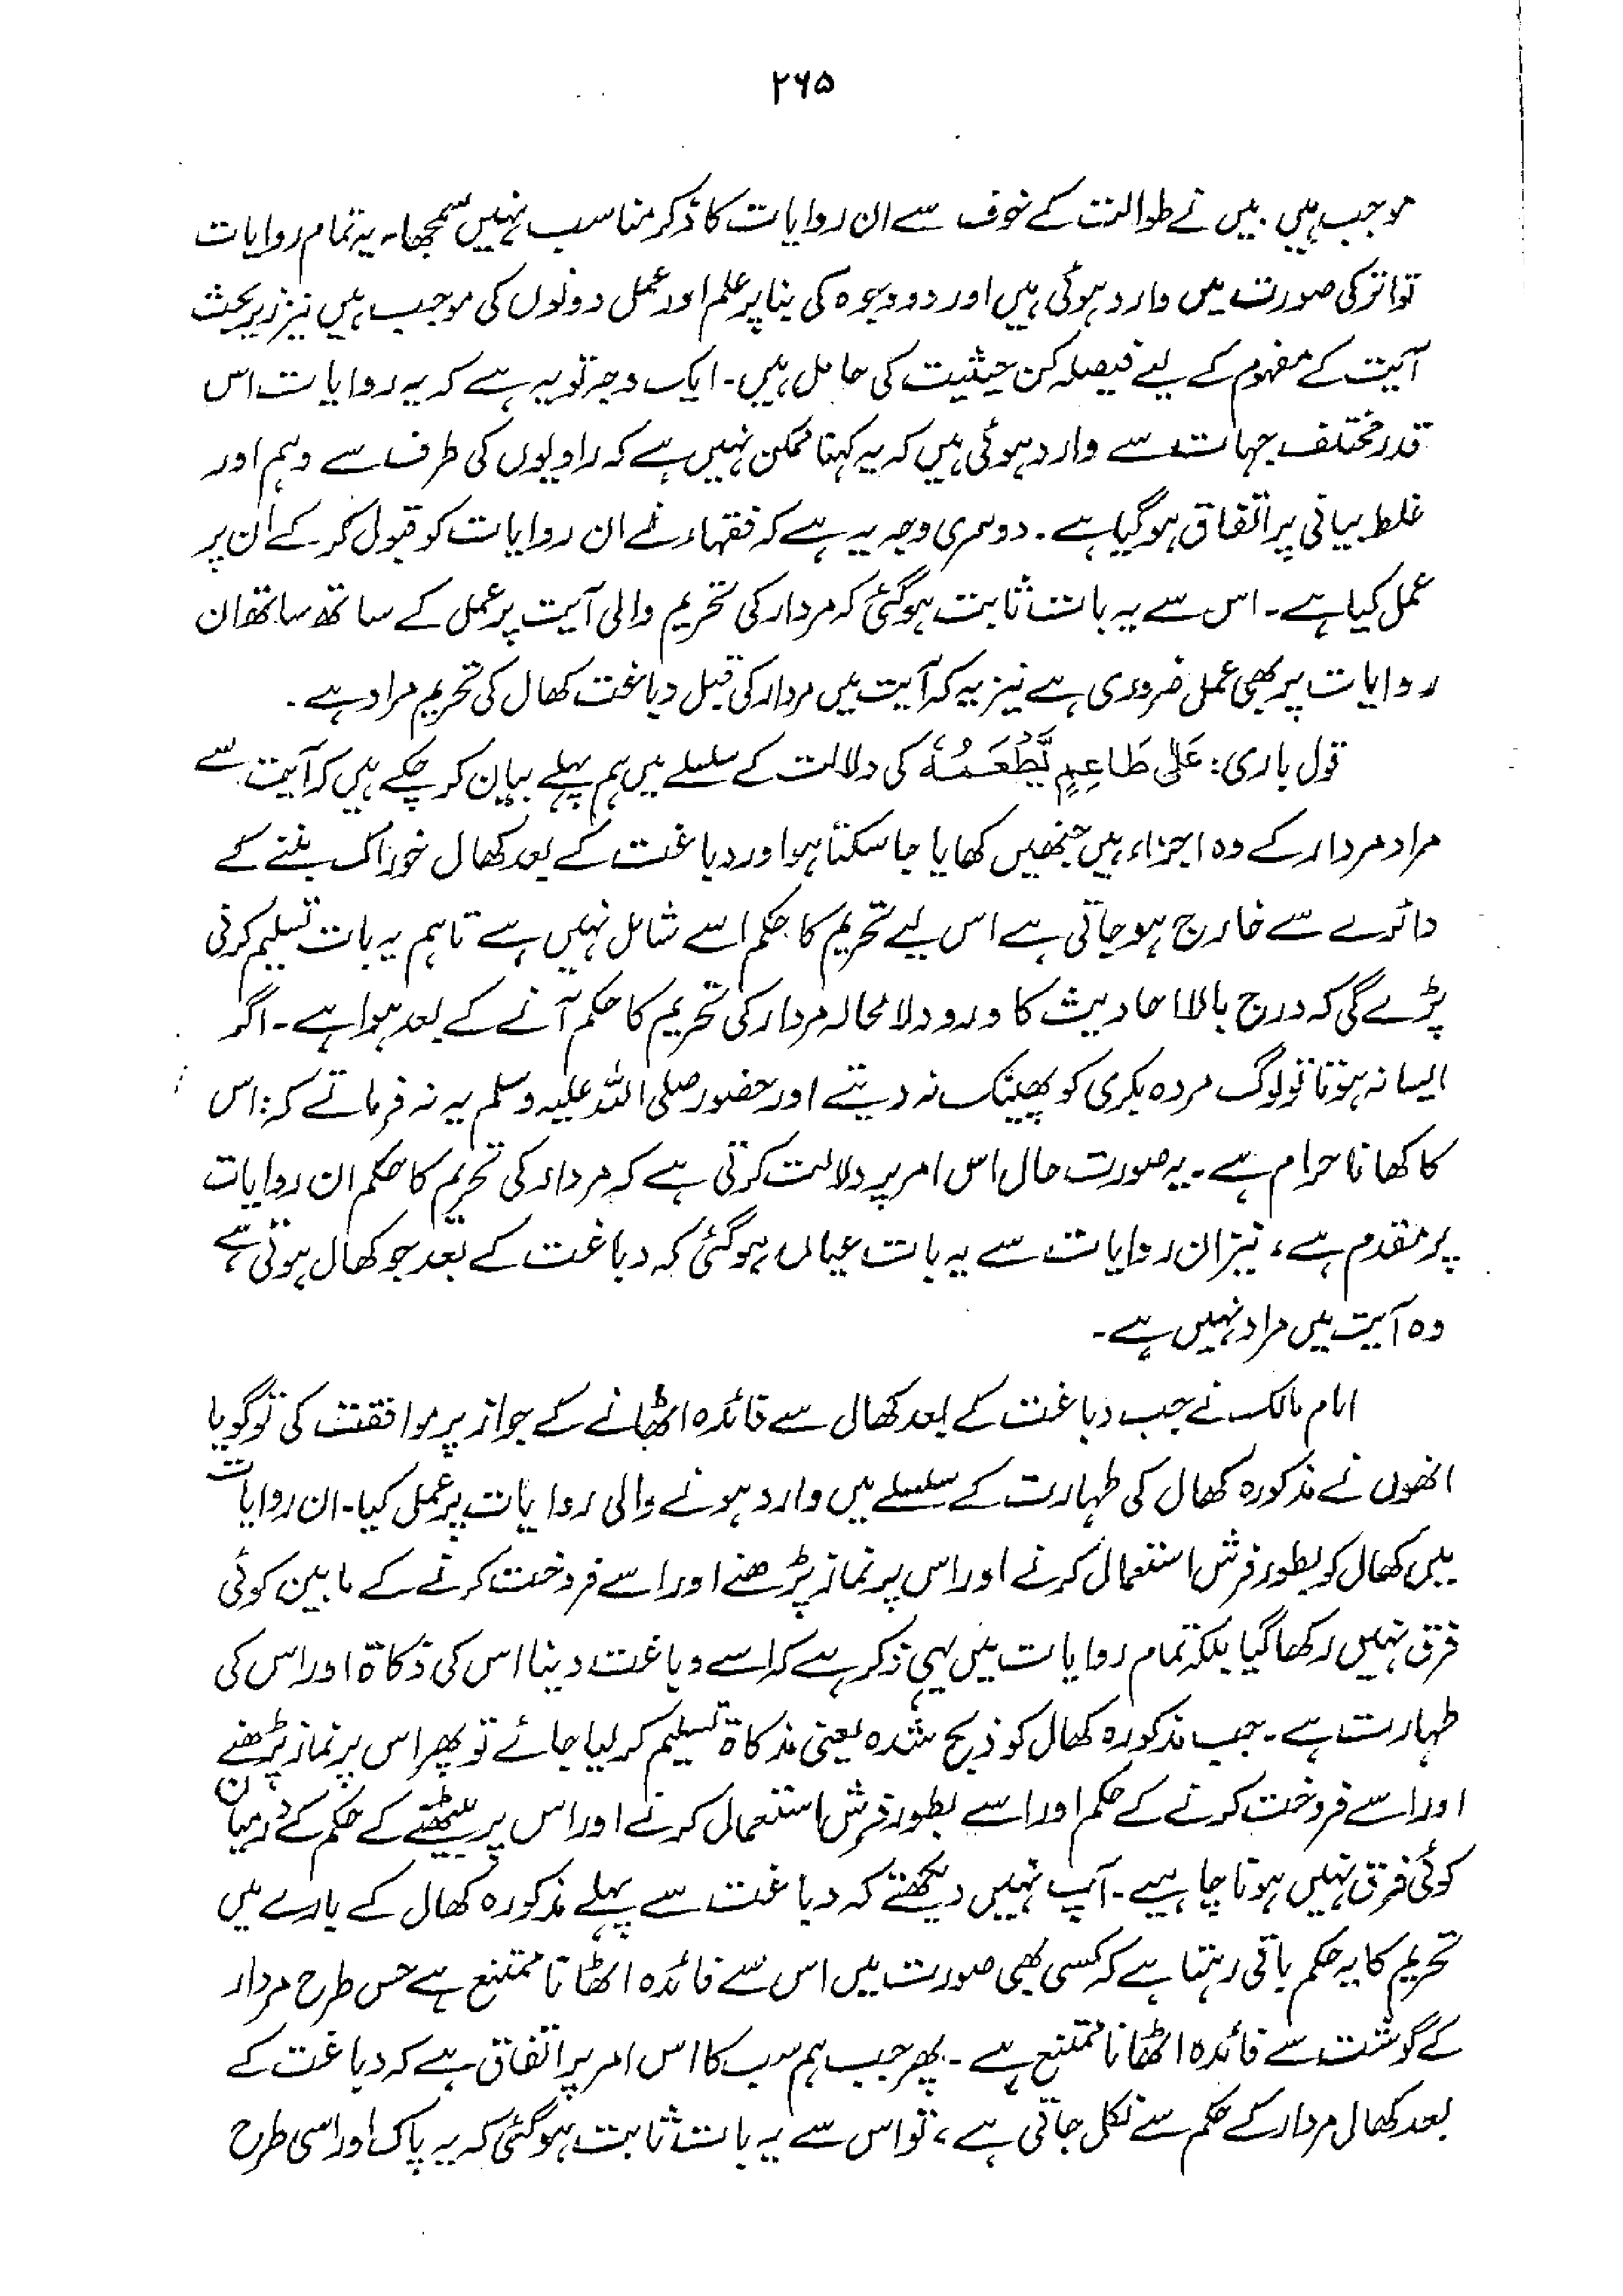 ۲۶۵
موجب ہیں۔ میں نے طوالت کے خوف سے ان روایات کا ذکر مناسب نہیں سمجھا۔ یہ تمام روایات
تواتر کی صورت میں وارد ہوئی ہیں اور دو وجوہ کی بنا پر علم اور عمل دونوں کی موجب ہیں نیز زیر بحث
آیت کے مفہوم کے لیے فیصلہ کن حیثیت کی حامل ہیں۔ ایک وجہ تو یہ ہے کہ یہ روایات اس
قدر مختلف جہات سے وارد ہوئی ہیں کہ یہ کہنا ممکن نہیں ہے کہ راویوں کی طرف سے وہم اور
غلط بیانی پر اتفاق ہوگیا ہے۔ دوسری وجہ یہ ہے کہ فقہاء نے ان روایات کو قبول کر کے ان پر
عمل کیا ہے۔ اس سے یہ بات ثابت ہوگئی کہ مردار کی تحریم والی آیت پر عمل کے ساتھ ساتھ ان
روایات پر بھی عمل ضروری ہے نیز یہ کہ آیت میں مردار کی قبل دباغت کھال کی تحریم مراد ہے۔
قول باری: عَلٰی طَاعِمٍ یَّطْعَمُہٗ کی دلالت کے سلسلے میں ہم پہلے بیان کر چکے ہیں کہ آیت سے
مراد مردار کے وہ اجزاء ہیں جنھیں کھایا جا سکتا ہو اور دباغت کے بعد کھال خوراک بننے کے
دائرے سے خارج ہو جاتی ہے اس لیے تحریم کا حکم اسے شامل نہیں ہے تاہم یہ بات تسلیم کرنی
پڑے گی کہ درج بالا احادیث کا ورود لا محالہ مردار کی تحریم کا حکم آنے کے بعد ہوا ہے۔ اگر
ایسا نہ ہوتا تو لوگ مردہ بکری کو پھینک نہ دیتے اور حضور صلی اللہ علیہ وسلم یہ نہ فرماتے کہ: اس
کا کھانا حرام ہے۔ یہ صورت حال اس امر پر دلالت کرتی ہے کہ مردار کی تحریم کا حکم ان روایات
پر مقدم ہے، نیز ان روایات سے یہ بات عیاں ہوگئی کہ دباغت کے بعد جو کھال ہوتی ہے
وہ آیت میں مراد نہیں ہے۔
امام مالک نے جب دباغت کے بعد کھال سے فائدہ اٹھانے کے جواز پر موافقت کی تو گویا
انھوں نے مذکورہ کھال کی طہارت کے سلسلے میں وارد ہونے والی روایات پر عمل کیا۔ ان روایات
میں کھال کو بطور فرش استعمال کرنے اور اس پر نماز پڑھنے اور اسے فروخت کرنے کے مابین کوئی
فرق نہیں رکھا گیا بلکہ تمام روایات میں یہی ذکر ہے کہ اسے دباغت دینا اس کی ذکاۃ اور اس کی
طہارت ہے۔ جب مذکورہ کھال کو ذبح شدہ یعنی مذکاۃ تسلیم کر لیا جائے تو پھر اس پر نماز پڑھنے
اور اسے فروخت کرنے کے حکم اور اسے بطور فرش استعمال کرنے اور اس پر بیٹھنے کے حکم کے درمیان
کوئی فرق نہیں ہونا چاہیے۔ آپ نہیں دیکھتے کہ دباغت سے پہلے مذکورہ کھال کے بارے میں
تحریم کا یہ حکم باقی رہتا ہے کہ کسی بھی صورت میں اس سے فائدہ اٹھانا ممتنع ہے جس طرح مردار
کے گوشت سے فائدہ اٹھانا ممتنع ہے۔ پھر جب ہم سب کا اس امر پر اتفاق ہے کہ دباغت کے
بعد کھال مردار کے حکم سے نکل جاتی ہے، تو اس سے یہ بات ثابت ہوگئی کہ یہ پاک اور اسی طرح